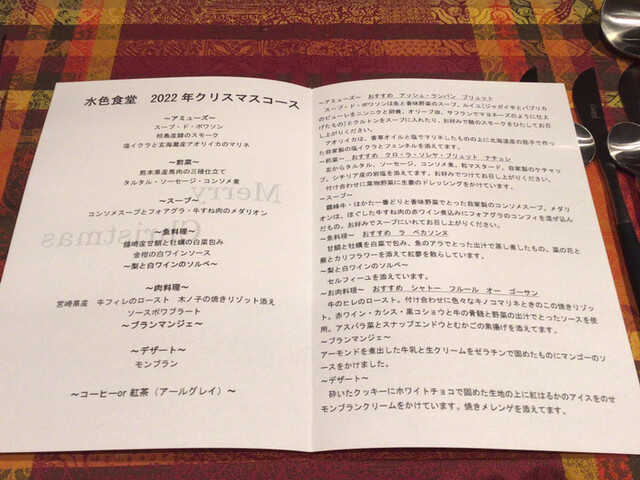 水色食堂　2022年クリスマスコース
～アミューズ～
スープ・ド・ポワソン
相島産鯖のスモーク
塩イクラと玄海灘産アオリイカのマリネ
～前菜～
熊本県産馬肉の三種仕立て
タルタル・ソーセージ・コンソメ煮
～スープ～
コンソメスープとフォアグラ・牛すね肉のメダリオン
～魚料理～
鐘崎産甘鯛と牡蠣の白菜包み
金柑の白ワインソース
～梨と白ワインのソルベ～
～肉料理～
宮崎県産　牛フィレのロースト　木ノ子の焼きリゾット添え
ソースポワブラート
～ブランマンジェ～
～デザート～
モンブラン
～コーヒーor 紅茶（アールグレイ）～
Merry
Christmas
～アミューズ～　おすすめ　アッシュ・ランパン　ブリュット
スープ・ド・ポワソンは魚と香味野菜のスープ。ルイユ(ジャガイモとパプリカ
のピューレをニンニクと卵黄、オリーブ油、サフランでマヨネーズのように仕上
げたもの)とクルトンをスープに入れたり、お好みで鯖のスモークをひたしてお召
し上がりください。
アオリイカは、香草オイルと塩でマリネしたものの上に北海道産の筋子で作っ
た自家製の塩イクラとフェンネルを添えてます。
～前菜～　おすすめ　クロ・ラ・ソレヤ・ブリュット　ナチュレ
左からタルタル、ソーセージ、コンソメ煮。粒マスタード、自家製のケチャッ
プ、シチリア産の岩塩を添えてます。お好みでつけてお召し上がりください。
付け合わせに葉物野菜に生姜のドレッシングをかけています。
～スープ～
霧峰牛・はかた一番どりと香味野菜でとった自家製のコンソメスープ。メダリ
オンは、ほぐした牛すね肉の赤ワイン煮込みにフォアグラのコンフィを混ぜ込ん
だもの。お好みでスープにいれてお召し上がりください。
～魚料理～　おすすめ　ラ　ベカソンヌ
甘鯛と牡蠣を白菜で包み、魚のアラでとった出汁で蒸し煮したもの。菜の花と
蕪とカリフラワーを添えて紅蓼を散らしています。
～梨と白ワインのソルベ～
セルフィーユを添えています。
～お肉料理～　おすすめ　シャトー　フルール　オー　ゴーサン
牛のヒレのロースト。付け合わせに色々なキノコマリネときのこの焼きリゾッ
ト。赤ワイン・カシス・黒コショウと牛の骨髄と野菜の出汁でとったソースを使
用。アスパラ菜とスナップエンドウとむかごの素揚げを添えてます。
～ブランマンジェ～
アーモンドを煮出した牛乳と生クリームをゼラチンで固めたものにマンゴーのソ
ースをかけました。
～デザート～
砕いたクッキーにホワイトチョコで固めた生地の上に紅はるかのアイスをのせ
モンブランクリームをかけています。焼きメレンゲを添えてます。